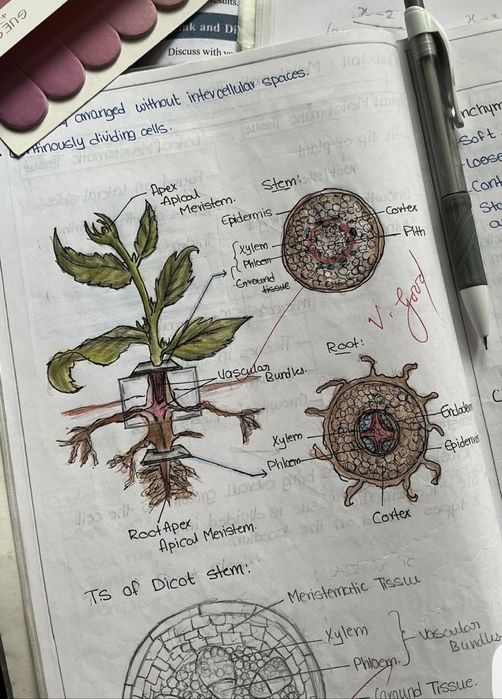 GUE
sults.
nk and Di
Discuss with
x-2
arranged without intercellular spaces.
continously dividing cells.
nchy
Soft
Loose
Cont
Sto
Apex
Apical
Meristem.
Stem:
Epidermis
Cortex
Pith
Xylem
Phloem
Ground
tissue
V. Good
Vascular
Bundles.
Root:
Endoder
Epidermi
Xylem
Phloem
Cortex
Root Apex
Apical Meristem.
T.S of Dicot stem:
Meristematic Tissue
Xylem
Phloem
Vascular
Bundles
Ground Tissue.